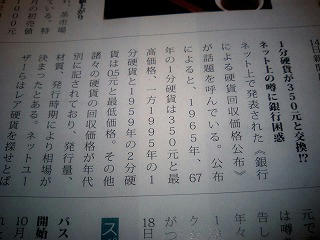 1分硬貨が350元と交換!?
ネット上の噂に銀行困惑
ネット上で発表された《銀行
による硬貨回収価格公布》
が話題を呼んでいる。公布
によると、1965年、67
年の1分硬貨は350元と最
高価格、一方1995年の1
分硬貨と1959年の2分硬
貨は0.5元と最低価格。その他
諸々の硬貨の回収価格が年代
別に記されており、発行量、
材質、発行時期により相場が
決まったとある。ネットユー
ザーらはレア硬貨を探せとば
元で
は噂
告し
年々
がつ
18日
ス
パス
開始
10月
茶市場
ている。特
月の初売値